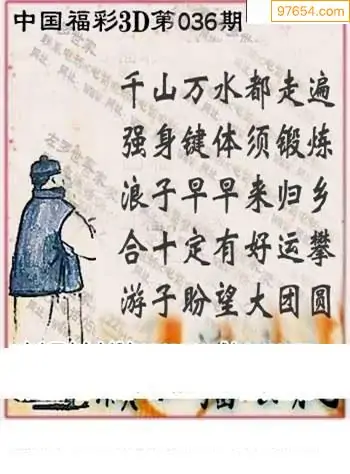 97654.com
中国福彩3D第036期
千山万水都走遍
强身键体须锻炼
浪子早早来归乡
合十定有好运攀
游子盼望大团圆